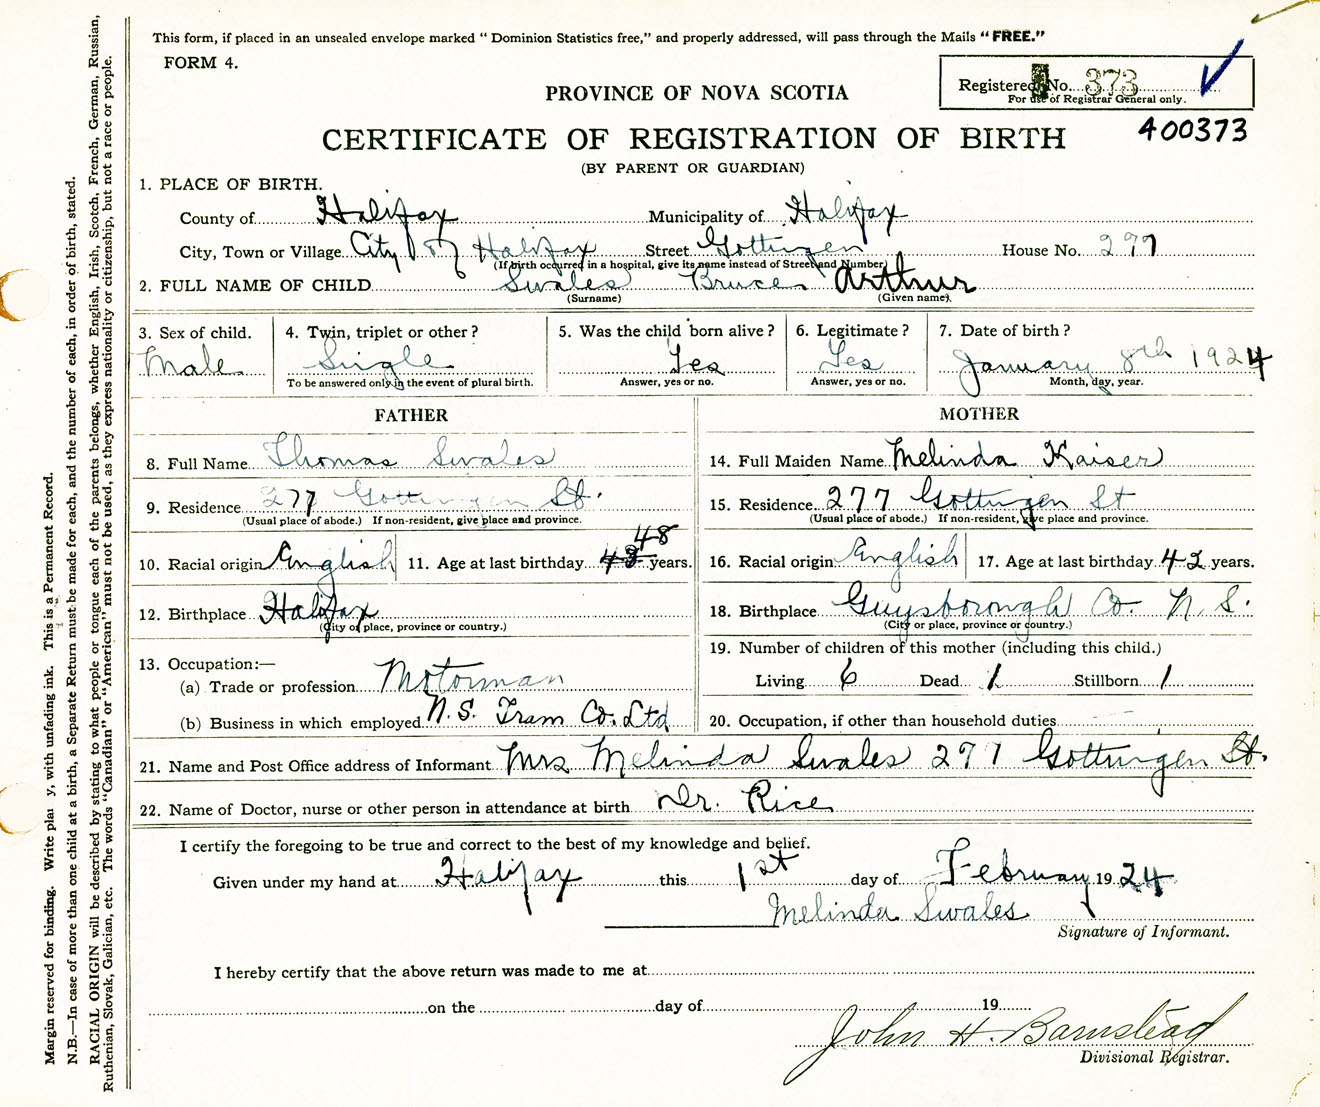 This form, if placed in an unsealed envelope marked " Dominion Statistics free," and properly addressed, will pass through the Mails " FREE."
FORM 4.
Registered No. 373
For use of Registrar General only.
PROVINCE OF NOVA SCOTIA
400373
CERTIFICATE OF REGISTRATION OF BIRTH
(BY PARENT OR GUARDIAN)
1. PLACE OF BIRTH.
County of Halifax Municipality of Halifax
City, Town or Village City of Halifax Street Gottingen House No. 277
(If birth occurred in a hospital, give its name instead of Street and Number)
2. FULL NAME OF CHILD Swales Bruce Arthur
(Surname) (Given name).
3. Sex of child. 4. Twin, triplet or other? 5. Was the child born alive? 6. Legitimate? 7. Date of birth?
Male Single Yes Yes January 8th 1924
To be answered only in the event of plural birth. Answer, yes or no. Answer, yes or no. Month, day, year.
FATHER MOTHER
8. Full Name Thomas Swales 14. Full Maiden Name Melinda Kaiser
9. Residence 277 Gottingen St. 15. Residence 277 Gottingen St
(Usual place of abode.) If non-resident, give place and province. (Usual place of abode.) If non-resident, give place and province.
48
10. Racial origin English 11. Age at last birthday years. 16. Racial origin English 17. Age at last birthday 42 years.
12. Birthplace Halifax 18. Birthplace Guysborough Co. N. S.
(City or place, province or country.) (City or place, province or country.)
13. Occupation:— 19. Number of children of this mother (including this child.)
(a) Trade or profession Motorman Living 6 Dead 1 Stillborn 1
(b) Business in which employed N. S. Tram Co. Ltd 20. Occupation, if other than household duties —
21. Name and Post Office address of Informant Mrs Melinda Swales 277 Gottingen St.
22. Name of Doctor, nurse or other person in attendance at birth Dr. Rice
I certify the foregoing to be true and correct to the best of my knowledge and belief.
Given under my hand at Halifax this 1st day of February 1924
Melinda Swales
Signature of Informant.
I hereby certify that the above return was made to me at
on the day of 19
John H. Barnstead
Divisional Registrar.
Margin reserved for binding. Write plai y, with unfading ink. This is a Permanent Record.
N.B.—In case of more than one child at a birth, a Separate Return must be made for each, and the number of each, in order of birth, stated.
RACIAL ORIGIN will be described by stating to what people or tongue each of the parents belongs, whether English, Irish, Scotch, French, German, Russian,
Ruthenian, Slovak, Galician, etc. The words "Canadian" or "American" must not be used, as they express nationality or citizenship, but not a race or people.